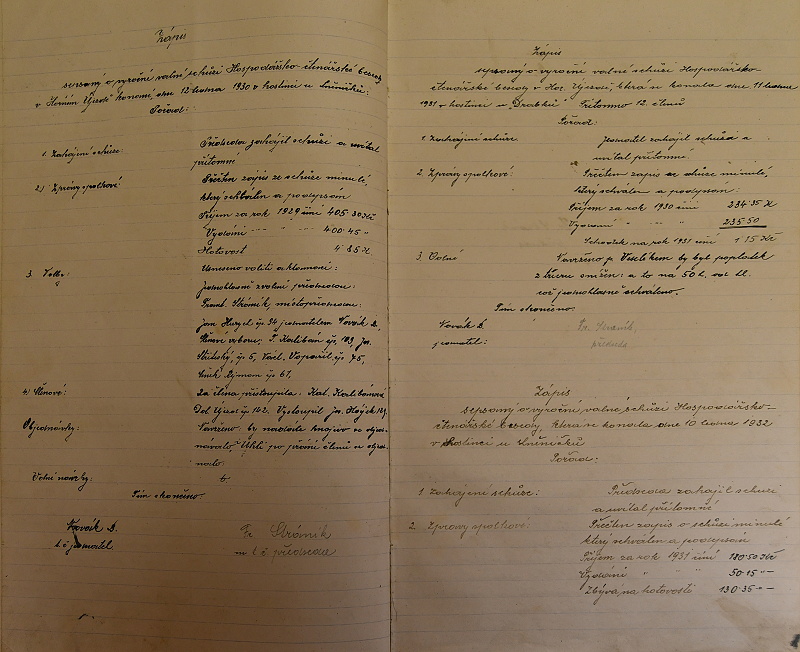 Zápis
sepsaný o výroční valné schůzi Hospodářsko-čtenářské besedy
v Horním Újezdě konané, dne 12 ledna 1930 v hostinci u
Pořad:
1. Zahájení schůze: Předseda zahájil schůzi a uvítal
přítomné
2) Zprávy spolkové: Přečten zápis ze schůze minulé,
který schválen a podepsán
Příjem za rok 1929 činí 405 30 Kč
Vydání " " " 400 45 "
Hotovost 4 85 K.
3. Volba: Usneseno voliti aklamací:
Jednohlasně zvoleni předsedou:
Frant. Stráník, místopředsedou:
Jan čp. 94 jednatelem Novák B.
Členové výboru: F. Kaliban čp. 103, Jos.
čp. 5, Václ. Vopařil čp. 75,
čp. 61,
4) Členové: Za člena přistoupila: Kat. Kalibanová
Dol Újezd čp. 142. Vystoupil Jos.
Objednávky: Navrženo: by
návalo. Uhlí po přání členů se objed-
nalo:
Volné návrhy:
Tím skončeno.
Novák B.
t. č. jednatel.
Fr. Stráník
t. č. předseda
Zápis
sepsaný o výroční valné schůzi Hospodářsko-
čtenářské besedy v Hor. Újezdě, která se konala dne 11 ledna
1931 v hostinci u „Drábků" Přítomno 12 členů
Pořad:
1. Zahájení schůze: Jednatel zahájil schůzi a
uvítal přítomné.
2. Zprávy spolkové: Přečten zápis ze schůze minulé,
který schválen a podepsán:
Příjem za rok 1930 činí 234·35 K
Vydání " " " 235·50
Schodek na rok 1931 činí 1 15 Kč
3. Volné: Navrženo p. by byl poplatek
z snížen: a to na 50 h. od
což jednohlasně schváleno.
Tím skončeno:
Novák B.
jednatel:
Fr. Stráník,
předseda
Zápis
sepsaný o výroční valné schůzi Hospodářsko-
čtenářské besedy, která se konala dne 10 ledna 1932
v hostinci u
Pořad:
1 Zahájení schůze: Předseda zahájil schůzi
a uvítal přítomné
2. Zprávy spolkové: Přečten zápis o schůzi minulé
který schválen a podepsán
Příjem za rok 1931 činí 180·50 Kč
Vydání " " 50·15 "
Zbývá na hotovosti 130·35 "